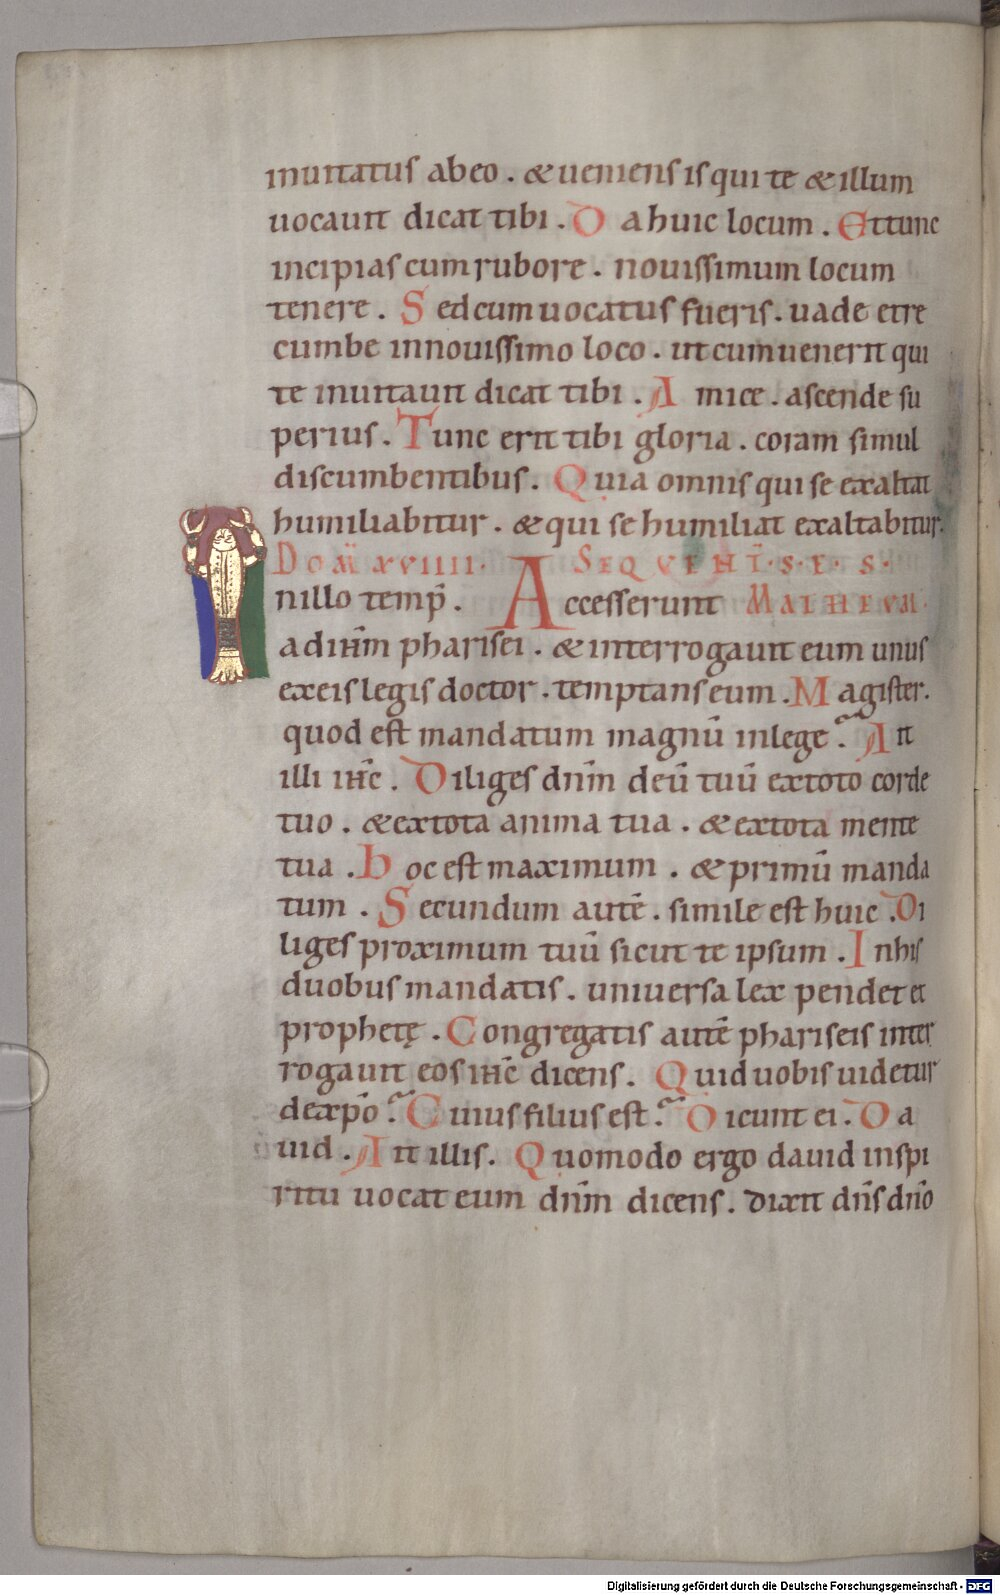 inuitatus ab eo . & ueniens is qui te & illum
uocauit dicat tibi . Da huic locum . Et tunc
incipias cum rubore . nouissimum locum
tenere . Sed cum uocatus fueris . uade et re
cumbe in nouissimo loco . ut cum uenerit qui
te inuitauit dicat tibi . Amice . ascende su
perius . Tunc erit tibi gloria . coram simul
discumbentibus . Quia omnis qui se exaltat
humiliabitur . & qui se humiliat exaltabitur .
DOM̄ XVIIII . SEQVENT̄ . S . E . S .
In illo temp̄ . Accesserunt MATHEVM .
ad ih̄m pharisei . & interrogauit eum unus
ex eis legis doctor . temptans eum . Magister .
quod est mandatum magnū in lege ? Ait
illi ih̄c . Diliges dn̄m deū tuū ex toto corde
tuo . & ex tota anima tua . & ex tota mente
tua . Hoc est maximum . & primū manda
tum . Secundum autē . simile est huic . Di
liges proximum tuū sicut te ipsum . In his
duobus mandatis . uniuersa lex pendet et
prophetę . Congregatis autē phariseis inter
rogauit eos ih̄c dicens . Quid uobis uidetur
de xp̄o ? Cuius filius est ? Dicunt ei . Da
uid . Ait illis . Quomodo ergo dauid in spi
ritu uocat eum dn̄m dicens . dixit dn̄s dn̄o
Digitalisierung gefördert durch die Deutsche Forschungsgemeinschaft - DFG